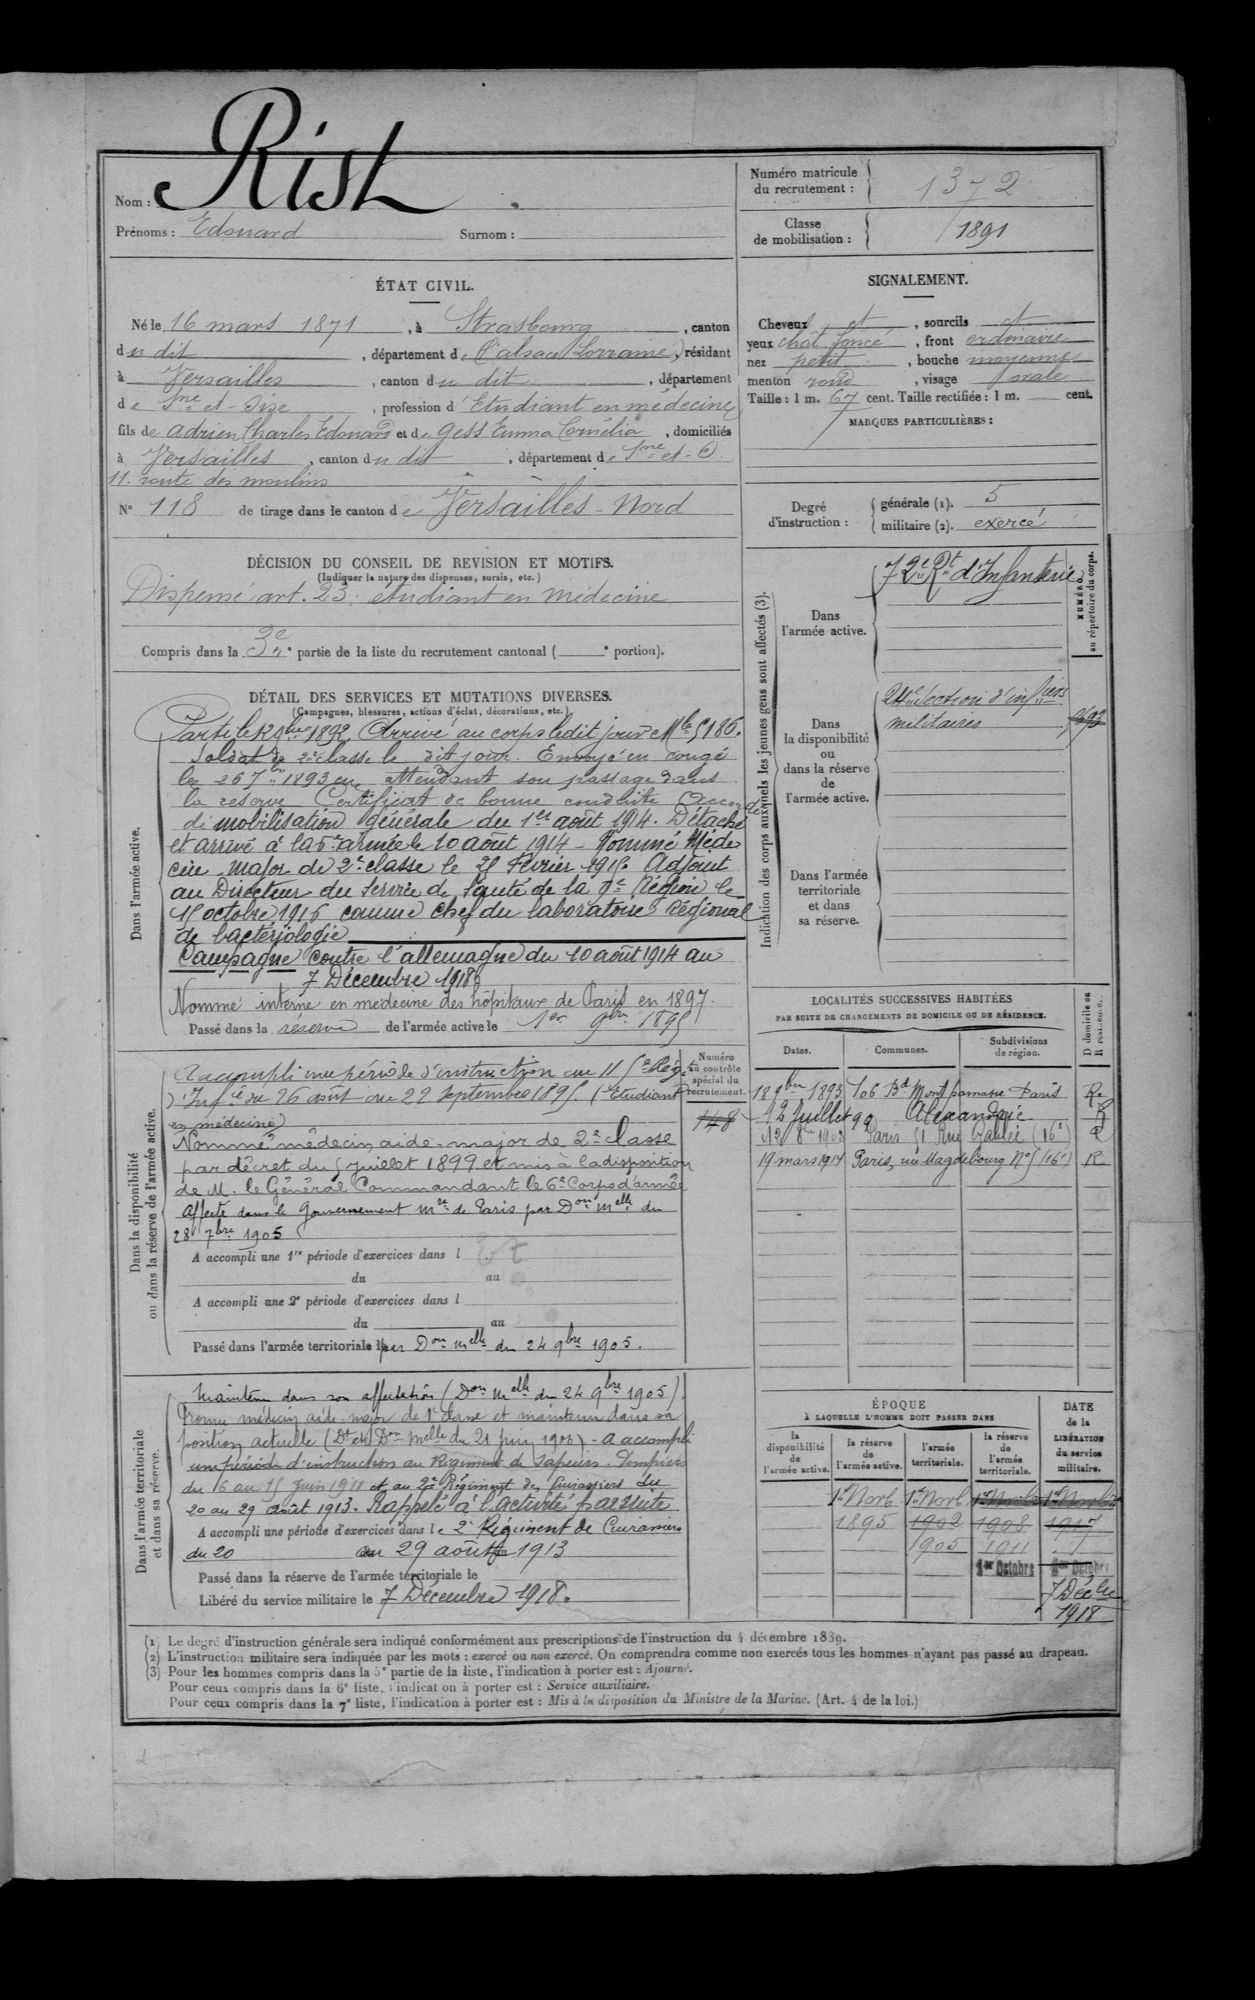 Nom : Rist
Prénoms : Edouard Surnom :
Numéro matricule
du recrutement : 1372
Classe
de mobilisation : 1891
ÉTAT CIVIL.
Né le 16 mars 1871, à Strasbourg, canton
du dit, département de l'alsace Lorraine, résidant
à Versailles, canton du dit, département
de Sne et-Oise, profession d'Etudiant en médecine
fils de Adrien Charles Edouard et de Gess Emma Cornélia, domiciliés
à Versailles, canton du dit, département de Sne et-O
11. route des moulins
N° 118 de tirage dans le canton de Versailles-Nord
SIGNALEMENT.
Cheveux et, sourcils ct
yeux chat foncé, front ordinaire
nez petit, bouche moyenne
menton rond, visage ovale
Taille : 1 m. 67 cent. Taille rectifiée : 1 m. cent.
MARQUES PARTICULIÈRES :
Degré
d'instruction :
générale (1). 5
militaire (2). exercé
DÉCISION DU CONSEIL DE REVISION ET MOTIFS.
(Indiquer la nature des dispenses, sursis, etc.)
Dispensé art. 23 : étudiant en médecine
Compris dans la 3e partie de la liste du recrutement cantonal ( e portion).
DÉTAIL DES SERVICES ET MUTATIONS DIVERSES.
(Campagnes, blessures, actions d'éclat, décorations, etc.)
Dans l'armée active.
Parti le 12 9bre 1892 Arrivé au corps ledit jour Mle 5186.
Soldat de 2e classe le dit jour. Envoyé en congé
le 26 7bre 1893 en attendant son passage dans
la réserve Certificat de bonne conduite Accordé
de mobilisation générale du 1er août 1914. Détaché
et arrivé à la 6e armée le 10 août 1914 - Nommé Méde
cin major de 2e classe le 25 Février 1915. Adjoint
au Directeur du Service de Santé de la 9e Région le
15 octobre 1916 comme chef du laboratoire Régional
de bactériologie
Campagne contre l'allemagne du 10 août 1914 au
7 Décembre 1918
Nommé interne en médecine des hôpitaux de Paris en 1897.
Passé dans la réserve de l'armée active le 1er 9bre 1895
Indication des corps auxquels les jeunes gens sont affectés (3).
NUMÉRO
au répertoire du corps.
Dans
l'armée active.
72e Rt d'Infanterie
Dans
la disponibilité
ou
dans la réserve
de
l'armée active.
militaires
Dans l'armée
territoriale
et dans
sa réserve.
LOCALITÉS SUCCESSIVES HABITÉES
PAR SUITE DE CHANGEMENTS DE DOMICILE OU DE RÉSIDENCE.
Dates. Communes. Subdivisions
de région.
D domicile ou
R résidence.
18 9bre 1893 106 Bd Montparnasse Paris R
12 Juillet 99 Alexandrie R
12 8bre 1903 Paris (1 Rue Galilée (16e) R
19 mars 1914 Paris, rue Magdebourg N° 5 (16e) R
Dans la disponibilité
ou dans la réserve de l'armée active.
Numéro
au contrôle
spécial du
recrutement.
148
A accompli une période d'instruction au 115e Régt
d'Infie du 26 août au 22 Septembre 1895. (Etudiant
en médecine)
Nommé médecin aide-major de 2e classe
par décret du 5 juillet 1899 et mis à la disposition
de M. le Général Commandant le 6e Corps d'armée
Affecté dans le Gouvernement mre de Paris par Don melle du
28 7bre 1905
A accompli une 1re période d'exercices dans l
du au
A accompli une 2e période d'exercices dans l
du au
Passé dans l'armée territoriale le par Don melle du 24 9bre 1905.
Dans l'armée territoriale
et dans sa réserve.
Maintenu dans son affectation (Don melle du 24 9bre 1905)
Promu médecin aide-major de 1e classe et maintenu dans sa
position actuelle (Dt et Don melle du 21 juin 1906) - a accompli
une période d'instruction au Régiment de Sapeurs-Pompiers
du 6 au 15 Juin 1911 et au 2e Régiment de Cuirassiers du
20 au 29 août 1913. Rappelé à l'activité par suite
A accompli une période d'exercices dans le 2e Régiment de Cuirassiers
du 20 au 29 août 1913
Passé dans la réserve de l'armée territoriale le
Libéré du service militaire le 7 Décembre 1918.
ÉPOQUE
À LAQUELLE L'HOMME DOIT PASSER DANS
la
disponibilité
de
l'armée active.
la réserve
de
l'armée active.
l'armée
territoriale.
la réserve
de
l'armée
territoriale.
DATE
de la
LIBÉRATION
du service
militaire.
1er Novb. 1er Novb. 1er Novbre 1er Novbre
1895 1902 1908 1917
1905 1911
1er Octobre 1er Octobre
7 Décbre
1918
(1) Le degré d'instruction générale sera indiqué conformément aux prescriptions de l'instruction du 4 décembre 1889.
(2) L'instruction militaire sera indiquée par les mots : exercé ou non exercé. On comprendra comme non exercés tous les hommes n'ayant pas passé au drapeau.
(3) Pour les hommes compris dans la 5e partie de la liste, l'indication à porter est : Ajourné.
Pour ceux compris dans la 6e liste, l'indication à porter est : Service auxiliaire.
Pour ceux compris dans la 7e liste, l'indication à porter est : Mis à la disposition du Ministre de la Marine. (Art. 4 de la loi.)